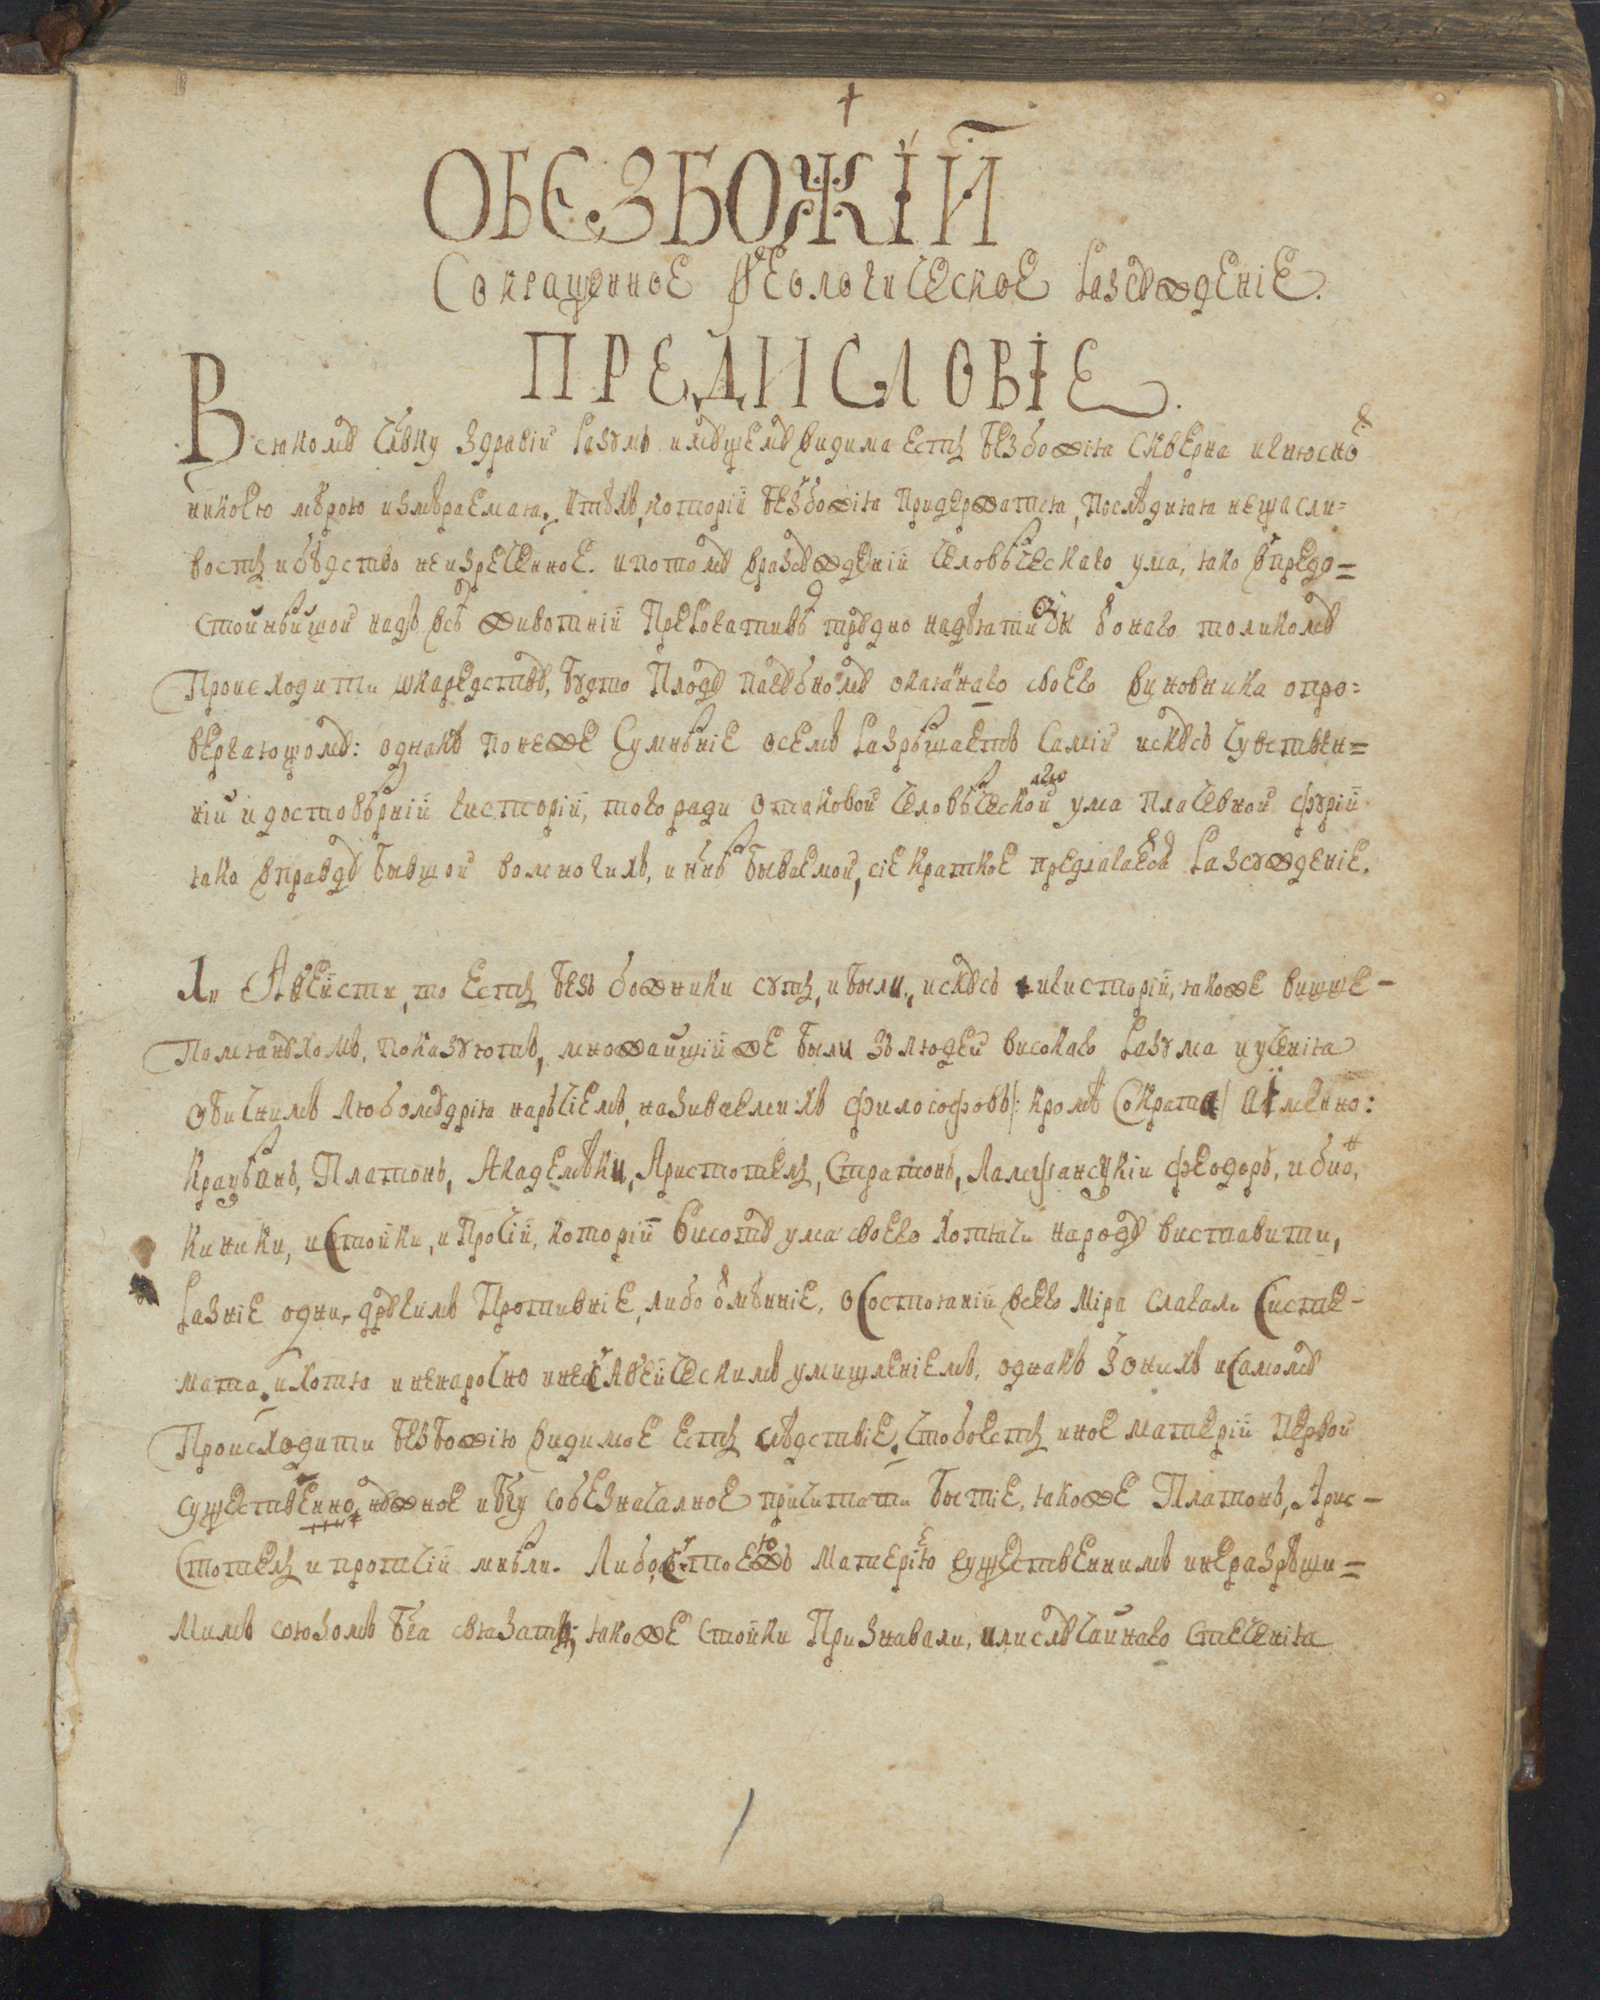 †
ОБЕЗБОЖІЙ
Сокращенное Ѳеологическое Разсуждение.
ПРЕДИСЛОВІЕ.
Всякому чл҃вку здравій разумъ имущему видима есть безбожія скверна и гнюсно
никоею мѣрою измѣраемая. И тѣхъ, которій безбожія придержатся, послѣдняя нещасли=
вость и бѣдство неизреченное. и потому вразсужденій человѣческаго ума, яко впредо=
стойнѣйшой надъ всѣ животній Прерогативѣ трудно надѣятися бонаго толикому
Происходити шкаредству, будто Плоду пагубному окаяннаго своего виновника опро=
вергающому: однакъ понеже Сумнѣніе о семъ разрѣшаетъ Самій искусъ чувствен=
ній и достовѣрній гисторій, того ради о таковой человѣческой ума плачевной фурій
яко вправду бывшой во многихъ, и нн҃ѣ бываемой, сіе краткое предлагается разсуждение.
1. Аѳейсти, то есть безбожники суть, и были, искусъ и гисторій, якоже вишше-
помянухомъ, показуютъ, множайшій же были зъ людей високаго разума и ученія
обичнимъ любомудрія нарѣчіемъ, називаемихъ философовъ /: кромѣ Сократа / а именно:
Платонъ, Академѣки, Аристотель, Стратонъ, Лампсанскій Ѳеодоръ, и біо,
Киники, и Стоики, и прочій, которій висоту ума своего хотячи народу виставити,
разніе одни другимъ Противніе, либо омѣнніе, о Состояній всего міра слагали Систе-
мата, и хотя и ненарочно и не Аѳейческимъ умишленіемъ, однакъ з онихъ и самому
Происходити безбожію видимое есть слѣдствіе, что бо есть иное матерій первой
существенно нужное и бг҃у собезначалное причитати бытіе, якоже Платонъ, Арис-
стотель и протчій мнѣли. Либо матерію существеннимъ и неразрѣши=
мимъ союзомъ бг҃а связать, якоже стойки Признавали, или случайнаго стеченія